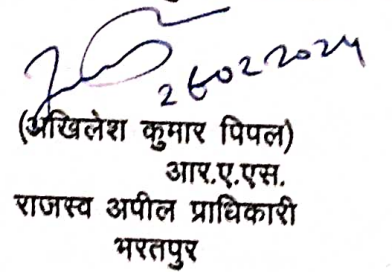 26022024
(अखिलेश कुमार पिपल)
आर.ए.एस.
राजस्व अपील प्राधिकारी
भरतपुर